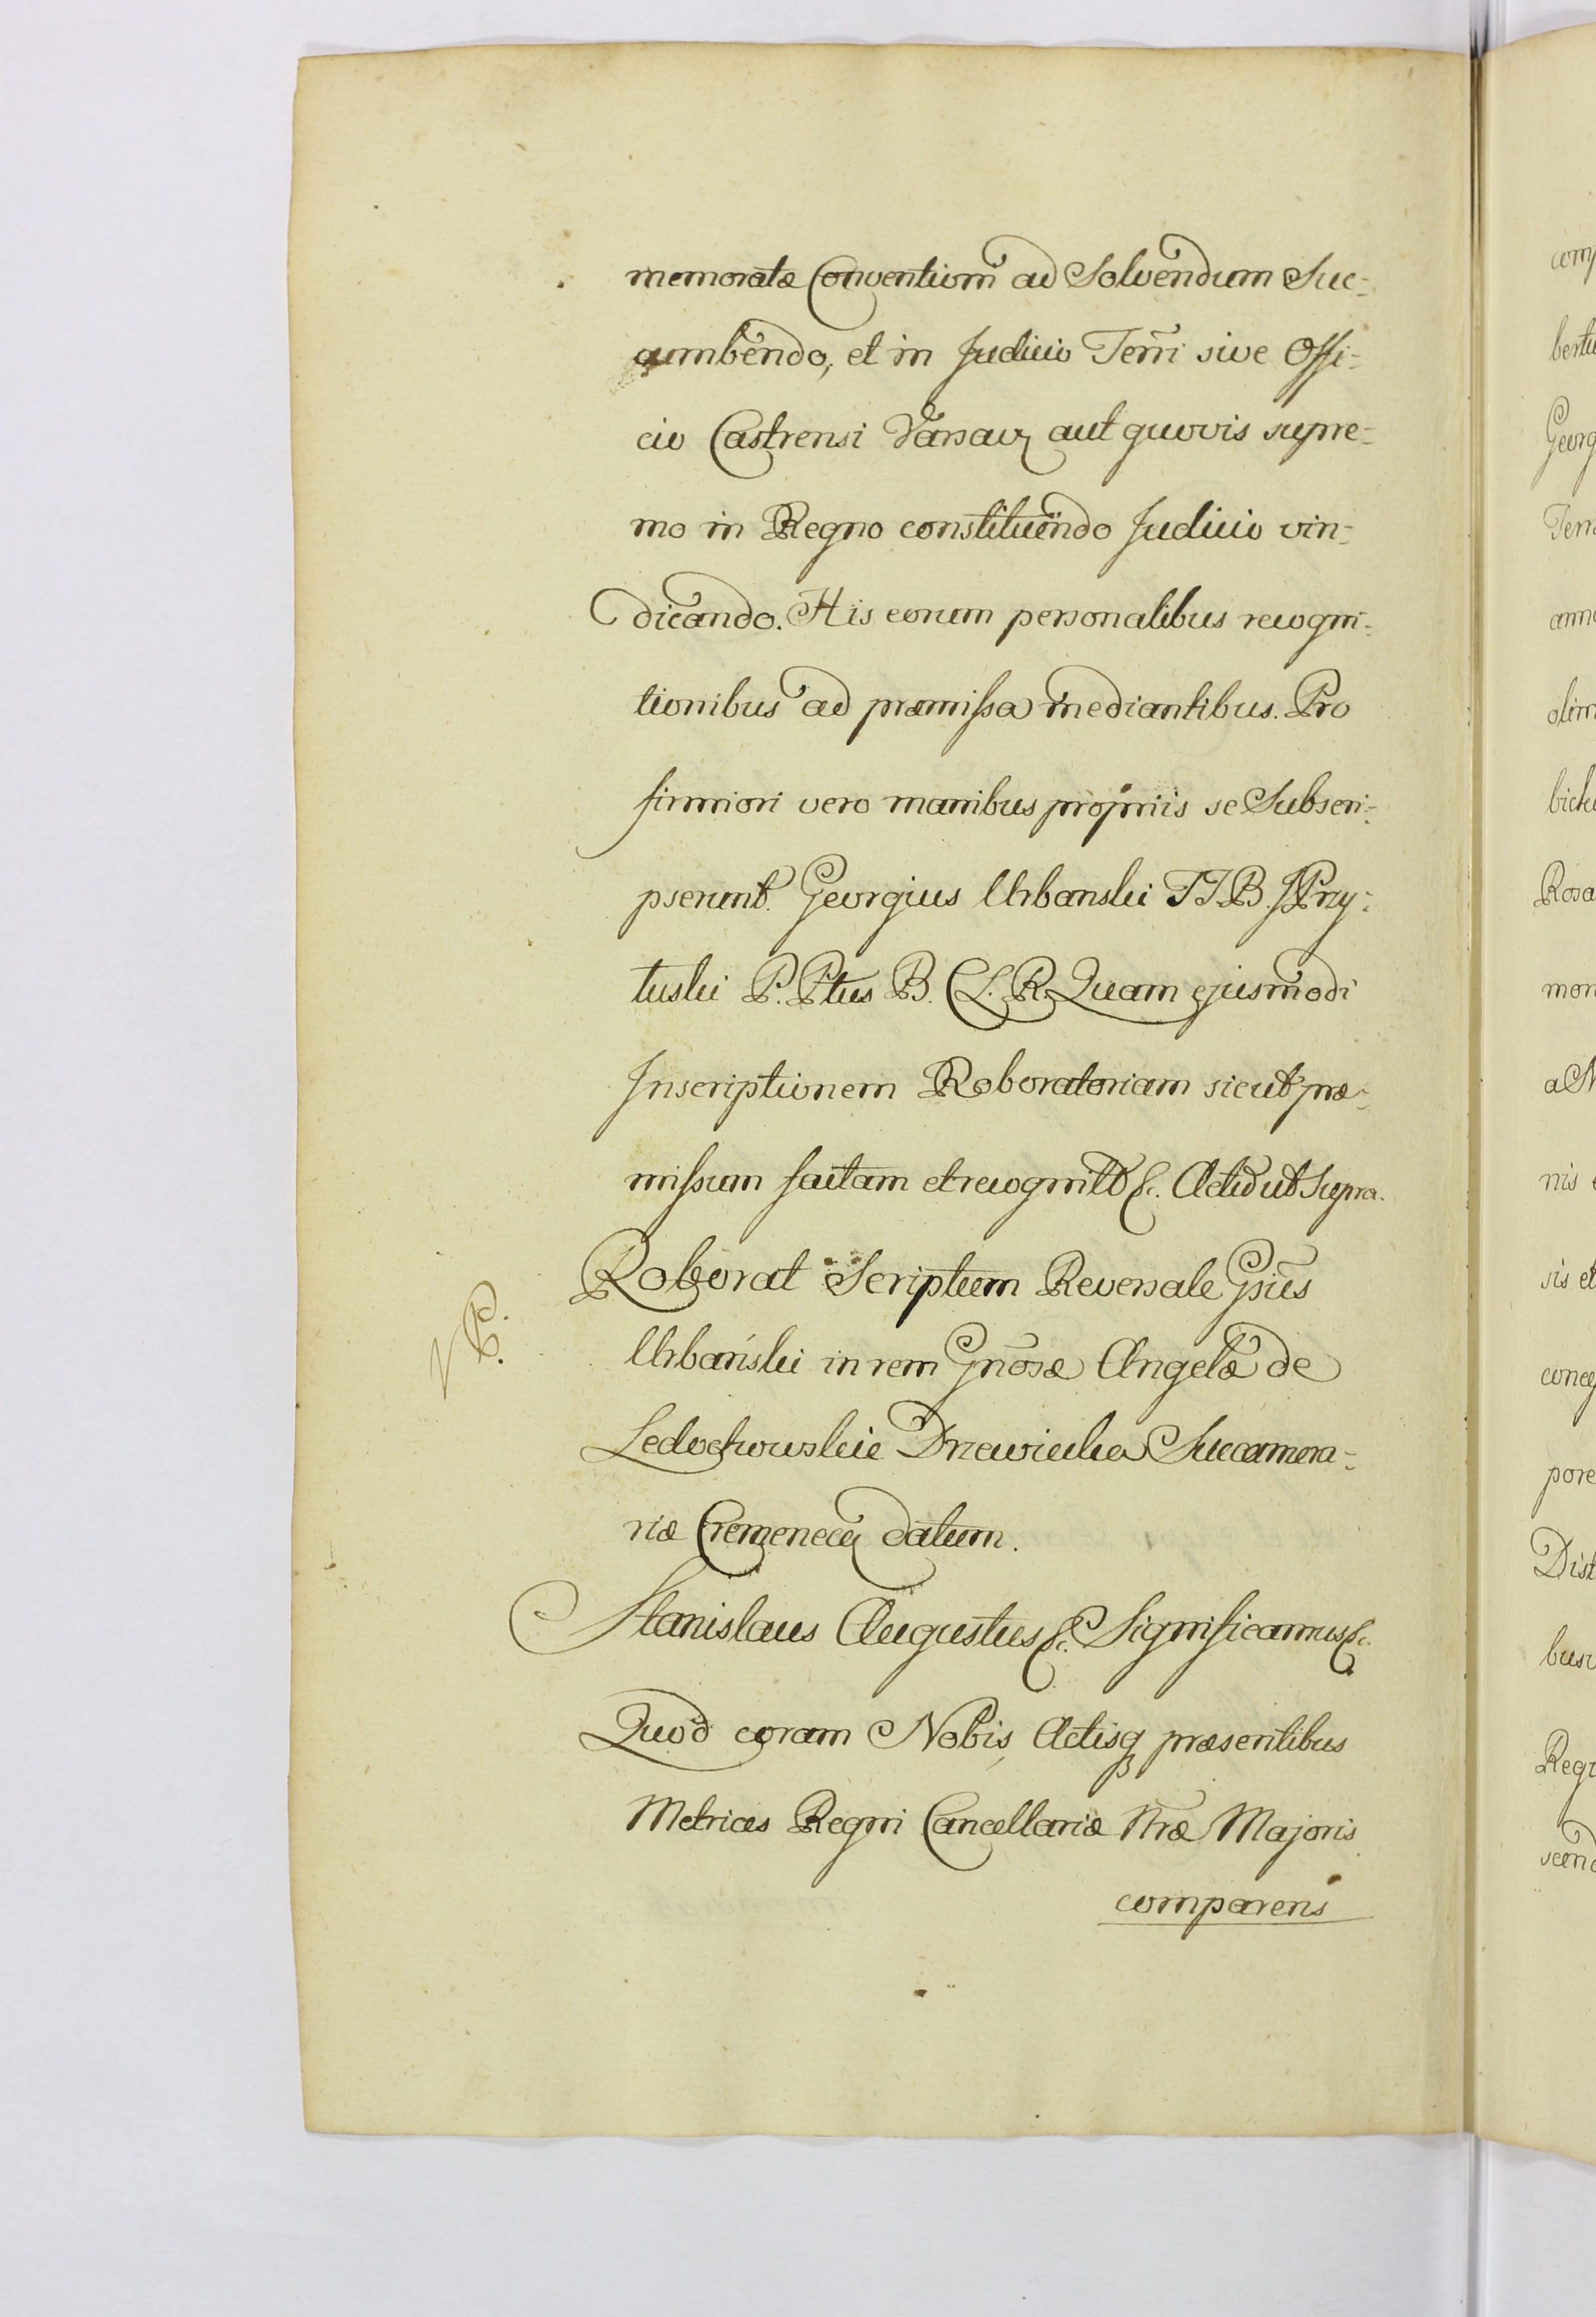 memoratæ Conventioni ad Solvendum Suc-
cumbendo, et in Judicio Terri sive Offi-
cio Castrensi Varsav, aut quovis supre-
mo in Regno constituendo Judicio vin-
dicando. His eorum personalibus recogni-
tionibus ad præmissa mediantibus. Pro
firmiori vero manibus propriis se Subscri-
pserunt. Georgius Urbanski T.T.B. J Pry-
tuski P. Ptus B. C. L. R. Quam ejusmodi
Inscriptionem Roboratoriam sicut præ-
missum factam et recognit &c. Actu ut Supra.
Roborat Scriptum Reversale Gsus
Urbański in rem Gnosæ Angelæ de
Ledochowskie Drzewiecka Succamera-
riæ Cremenecen datum.
Stanislaus Augustus &c. Significamus &c.
Quod coram Nobis, Actisq præsentibus
Metrices Regni Cancellariæ Nræ Majoris
comparens
com
bertu
Georg
Terr
anno
olim
bick
Rosa
mon
a N
nis
sis et
conce
pore
Dist
bus
Regn
scen